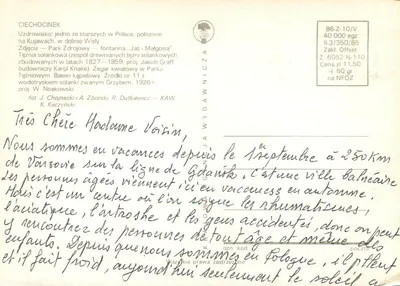 CIECHOCINEK
Uzdrowisko: jedno ze starszych w Polsce, położone
na Kujawach, w dolinie Wisły
Zdjęcie — Park Zdrojowy — fontanna „Jaś i Małgosia”
Tężnia solankowa (zespół drewnianych tężni solankowych
zbudowanych w latach 1827—1859, proj. Jakub Graff
budowniczy Karol Knake). Zegar kwiatowy w Parku
Tężniowym. Basen kąpielowy. Źródło nr 11 a
wodotryskiem solanki zwanym Grzybem, 1926 r.
proj. W. Noakowski
fot. J. Chojnacki, A. Zborski, R. Dutkiewicz — KAW,
K. Kaczyński
86-Z-10/V
40 000 egz.
II-3/350/85
Zakł. Offset
Z. 6052 N-110
Cena zł 11,50
+ 50 gr
na NFOZ
Très Chère Madame Voisin,
Nous sommes en vacances depuis le 1er septembre à 250 km
de Varsovie sur la ligne de Gdańsk. C'est une ville balnéaire
des personnes agées viennent ici en vacances en automne.
Mais c'est un centre où l'on soigne les rhumatismes,
l'arthrose et les gens accidentés, donc on peut
y rencontrer des personnes de tout âge et même des
enfants. Depuis que nous sommes en Pologne, il pleut
et il fait froid, aujourd'hui seulement le soleil a